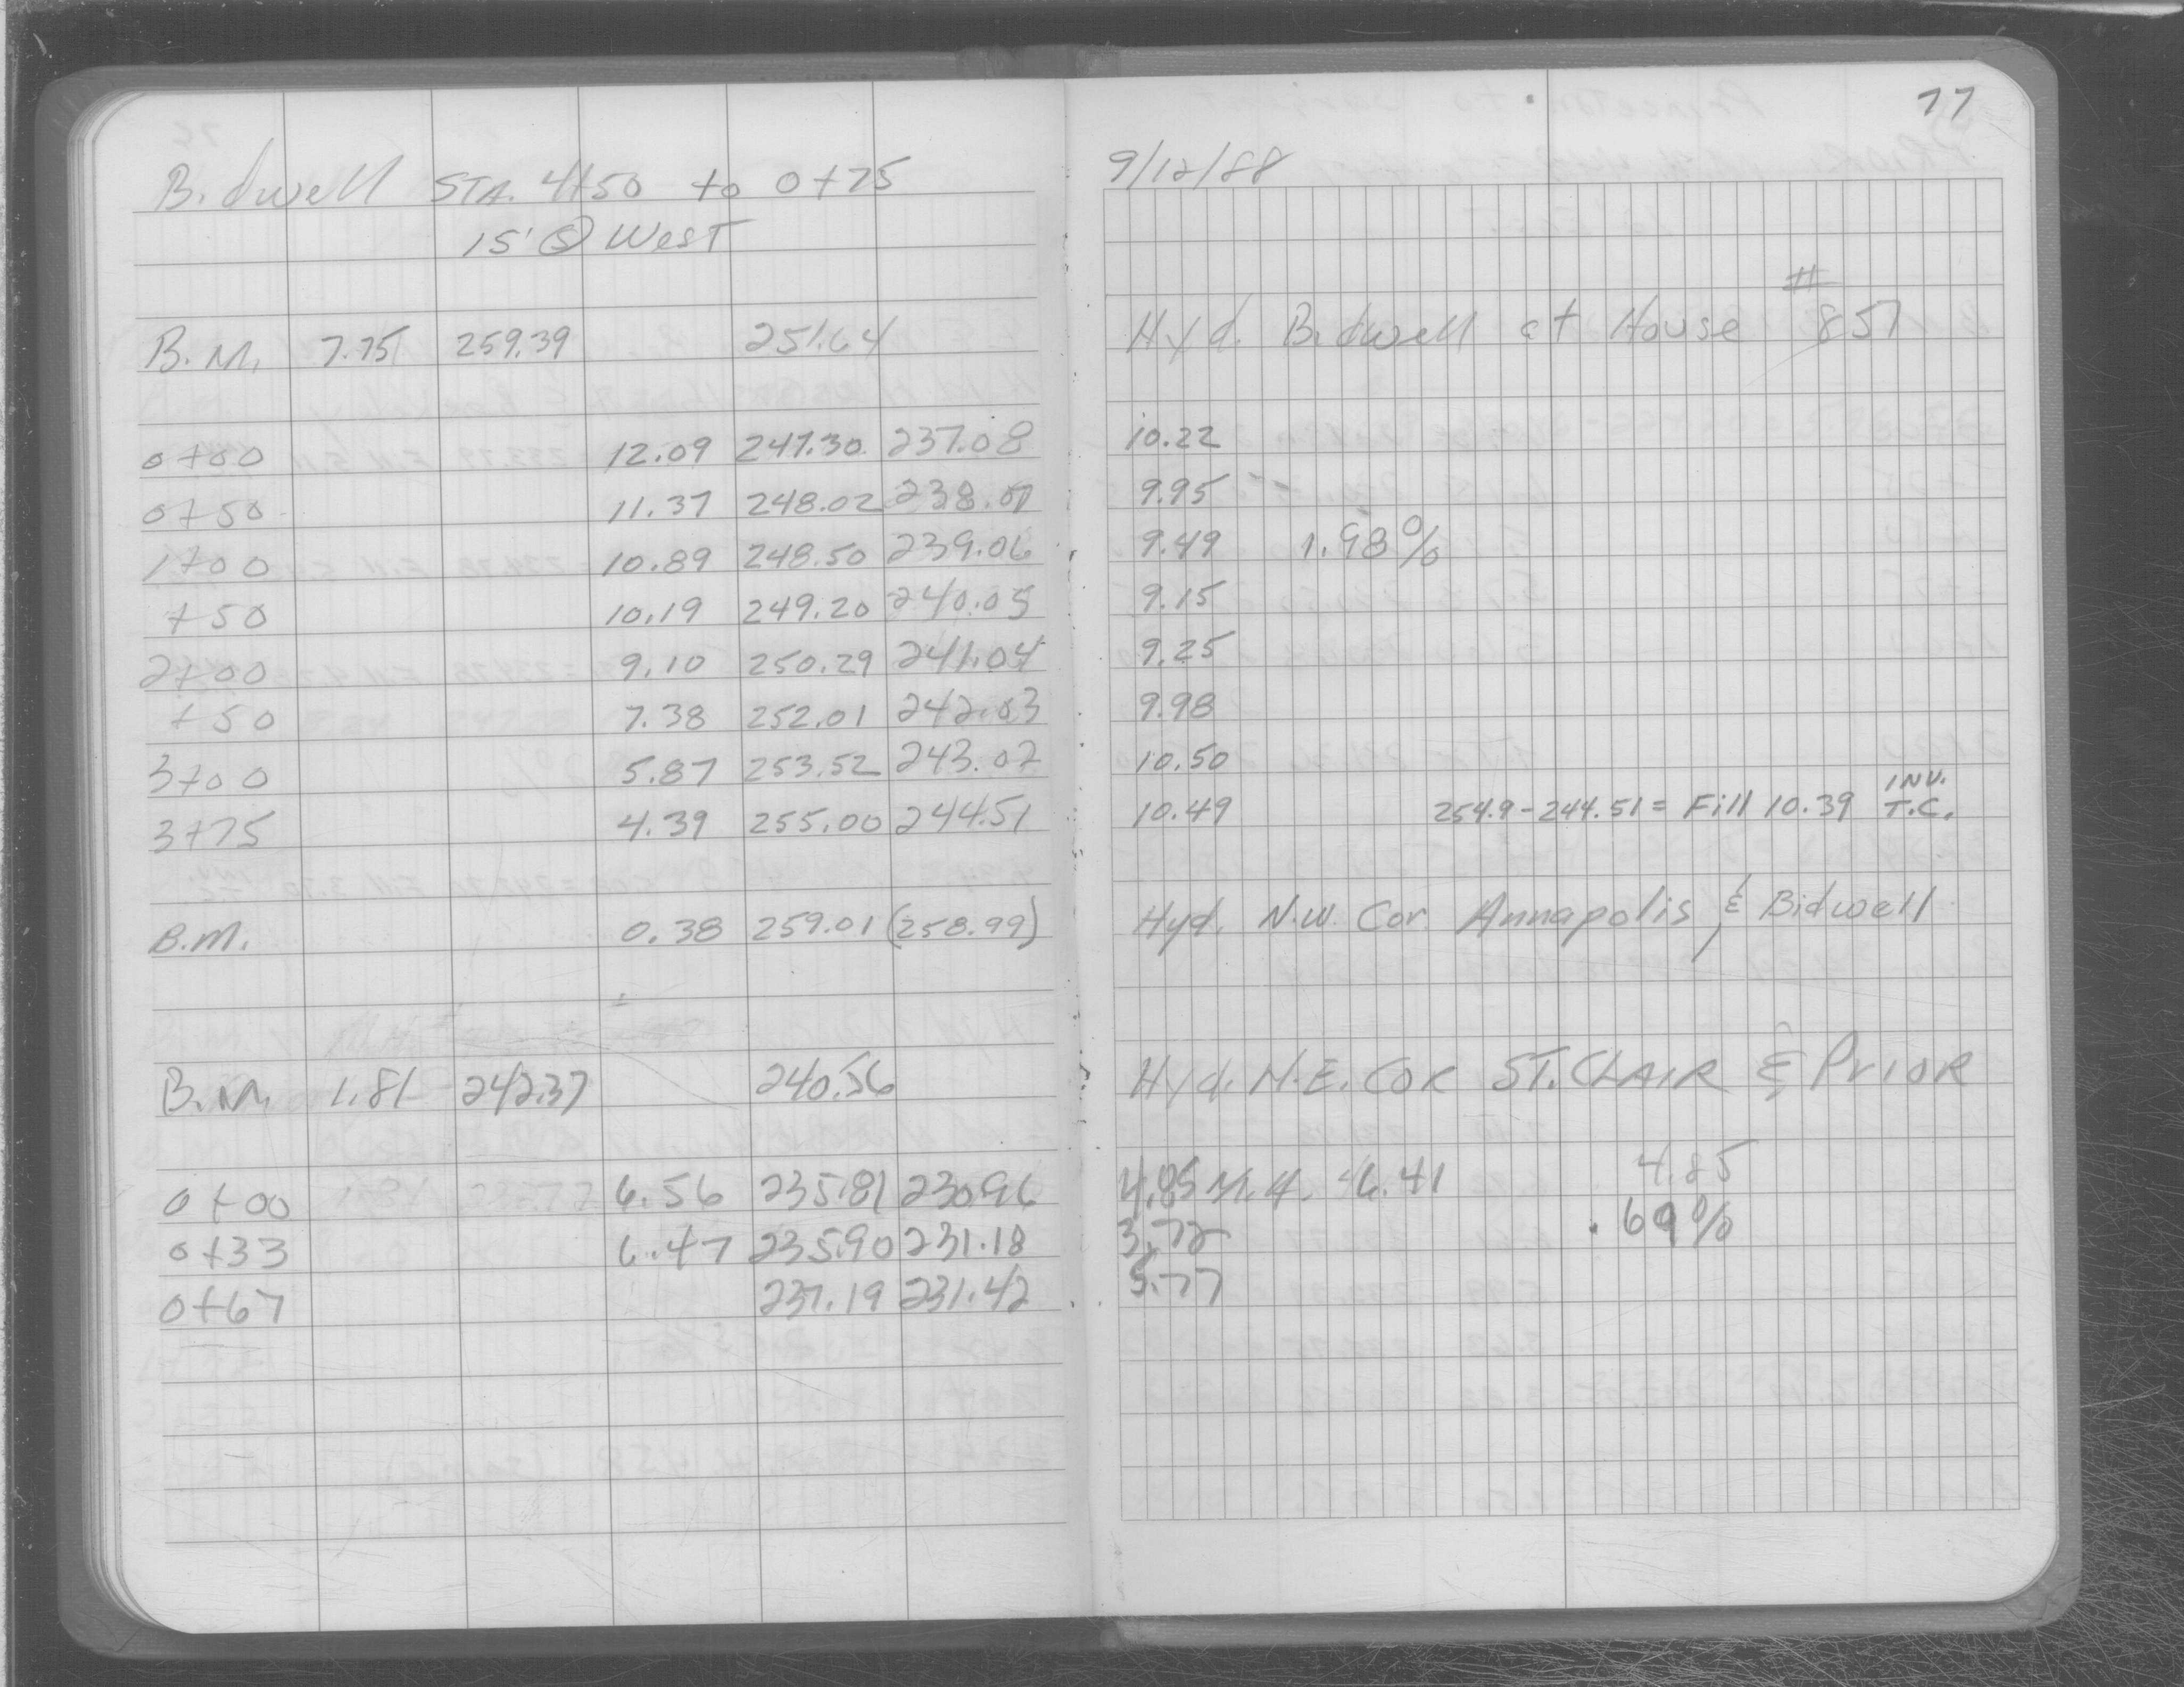 77
Bidwell STA. 4+50 to 0+25
15' @ West
9/12/88
B.M. 7.75 259.39 251.64 Hyd. Bidwell at House # 857
0+00 12.09 247.30 237.08 10.22
0+50 11.37 248.02 238.07 9.95
1+00 10.89 248.50 239.06 9.49 1.98%
+50 10.19 249.20 240.05 9.15
2+00 9.10 250.29 241.04 9.25
+50 7.38 252.01 242.03 9.98
3+00 5.87 253.52 243.02 10.50
3+75 4.39 255.00 244.51 10.49 254.9-244.51= Fill 10.39 INV. T.C.
B.M. 0.38 259.01 (258.99) Hyd. N.W. Cor. Annapolis & Bidwell
B.M. 1.81 242.37 240.56 Hyd. N.E. COR ST. CLAIR & PRIOR
0+00 6.56 235.81 230.96 4.85 M.H. 6.41 4.85
0+33 6.47 235.90 231.18 3.72 .69%
0+67 237.19 231.42 5.77